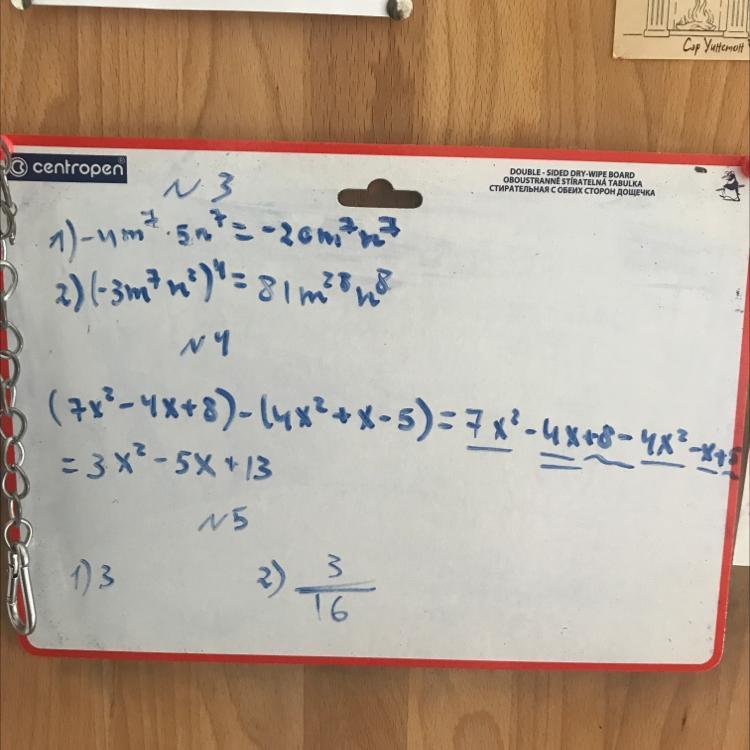 Сэр Уинстон
centropen
DOUBLE - SIDED DRY-WIPE BOARD
OBOUSTRANNĚ STÍRATELNÁ TABULKA
СТИРАТЕЛЬНАЯ С ОБЕИХ СТОРОН ДОЩЕЧКА
№3
1) -4m⁷ · 5n⁷ = -20m⁷n⁷
2) (-3m⁷n²)⁴ = 81m²⁸n⁸
№4
(7x² - 4x + 8) - (4x² + x - 5) = 7x² - 4x + 8 - 4x² - x + 5
= 3x² - 5x + 13
№5
1) 3 2) 3/16